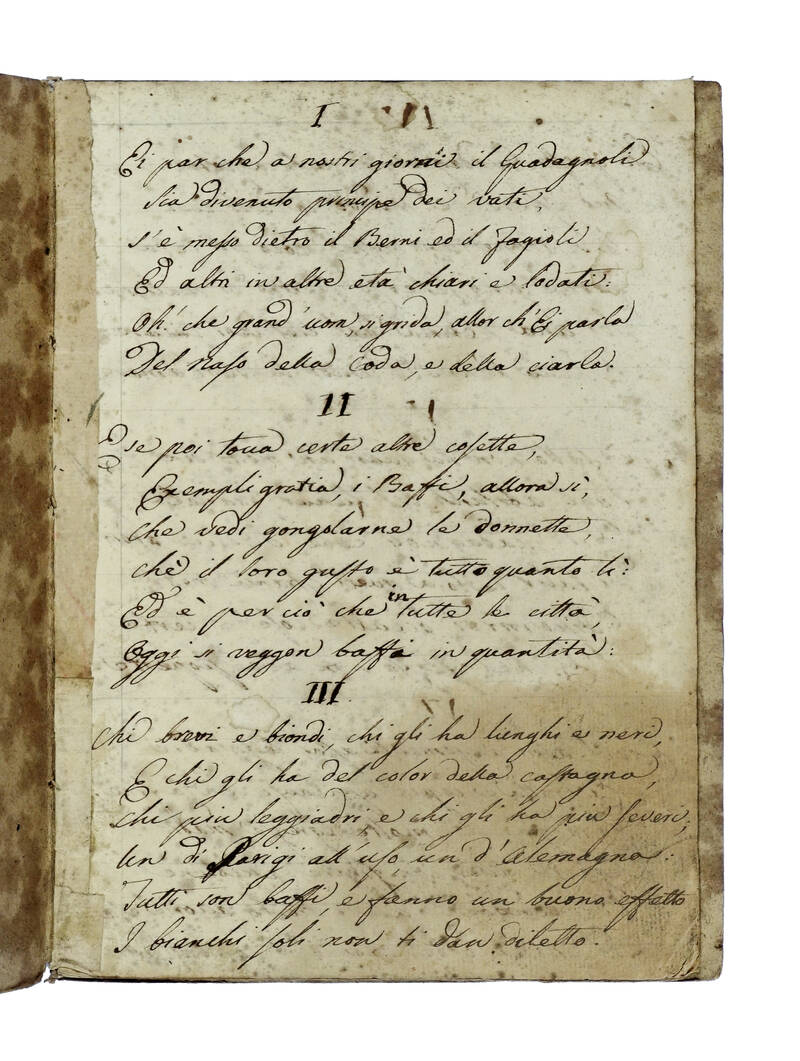 I
Ei par che a nostri giorni il Guadagnoli
Sia divenuto principe dei vati,
S'è messo dietro il Berni ed il Fagioli
Ed altri in altre età chiari e lodati:
Oh! che grand'uom, si grida, allor ch'Ei parla
Del Naso della Coda, e della ciarla.
II
E se poi tocca certe altre cosette,
Exempli gratia, i Baffi, allora sì,
Che vedi gongolarne le donnette,
Chè il loro gusto è tutto quanto lì:
Ed è per ciò che in tutte le città,
Oggi si veggon baffi in quantità:
III
Chi brevi e biondi, chi gli ha lunghi e neri,
E chi gli ha del color della castagna,
Chi più leggiadri e chi gli ha più severi,
Un di Parigi all'uso, un d'Alemagna:
Tutti son baffi, e fanno un buono effetto
I bianchi soli non ti dan diletto.